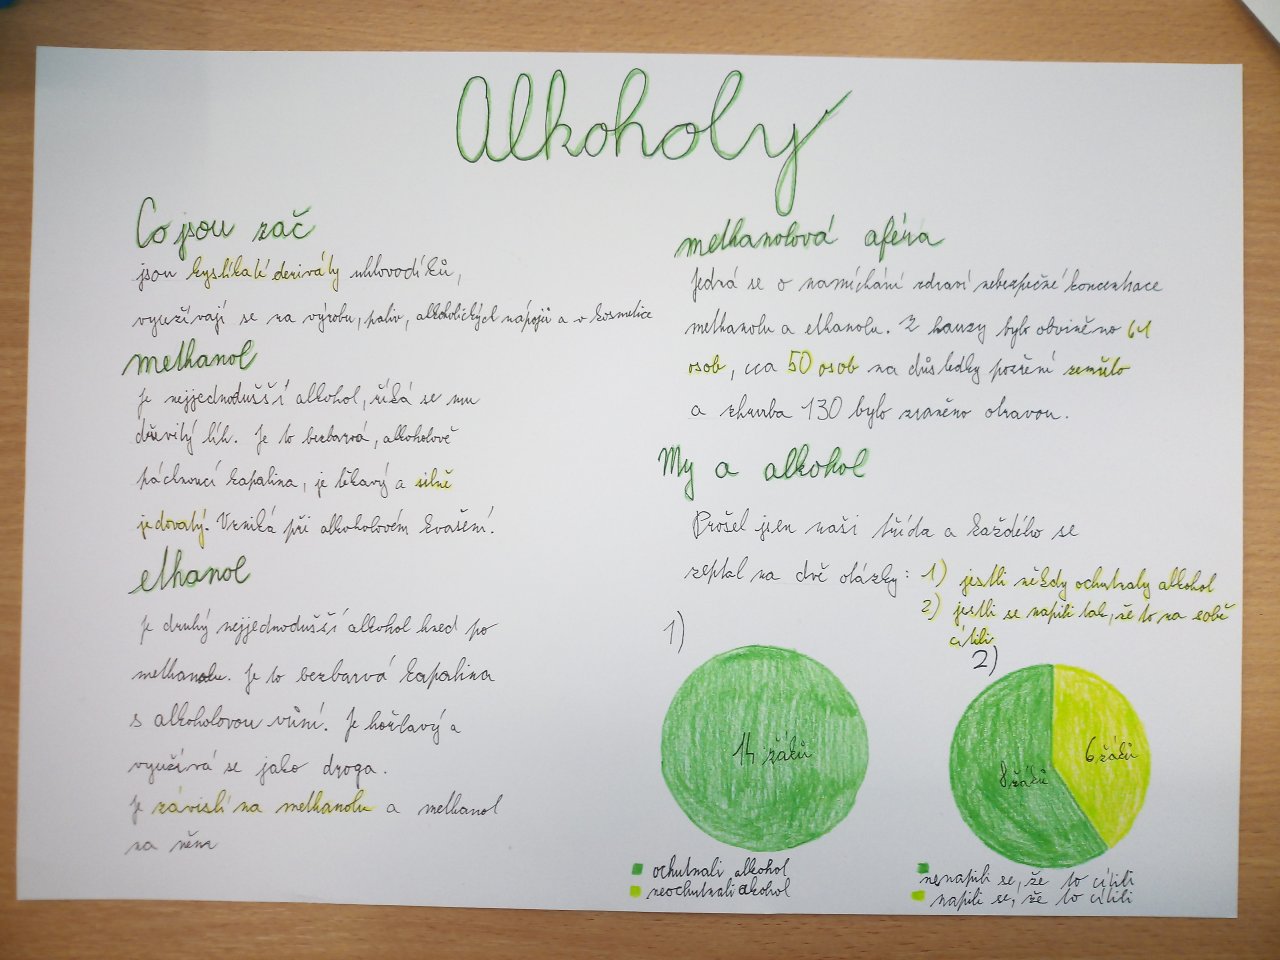 Alkoholy
Co jsou zač
jsou kyslíkaté deriváty uhlovodíků,
využívají se na výrobu, paliv, alkoholických nápojů a v kosmetice
methanol
Je nejjednodušší alkohol, říká se mu
dřevitý líh. Je to bezbarvá, alkoholově
páchnoucí kapalina, je těkavý a silně
jedovatý. Vzniká při alkoholovém kvašení.
ethanol
Je druhý nejjednodušší alkohol hned po
methanolu. Je to bezbarvá kapalina
s alkoholovou vůní. Je hořlavý a
využívá se jako droga.
Je závislí na methanolu a methanol
na něm
methanolová aféra
Jedná se o namíchání zdraví nebezpečné koncentrace
methanolu a ethanolu. Z kauzy bylo obviněno 61
osob, cca 50 osob na důsledky pozření zemřelo
a zhruba 130 bylo zraněno otravou.
My a alkohol
Prošel jsem naši třídu a každého se
zeptal na dvě otázky: 1) jestli někdy ochutnaly alkohol
2) jestli se napili tak, že to na sobě
cítili
1)
14 žáků
ochutnali alkohol
neochutnali akohol
2)
6 žáků
8 žáků
nenapili se, že to cítili
napili se, že to cítili